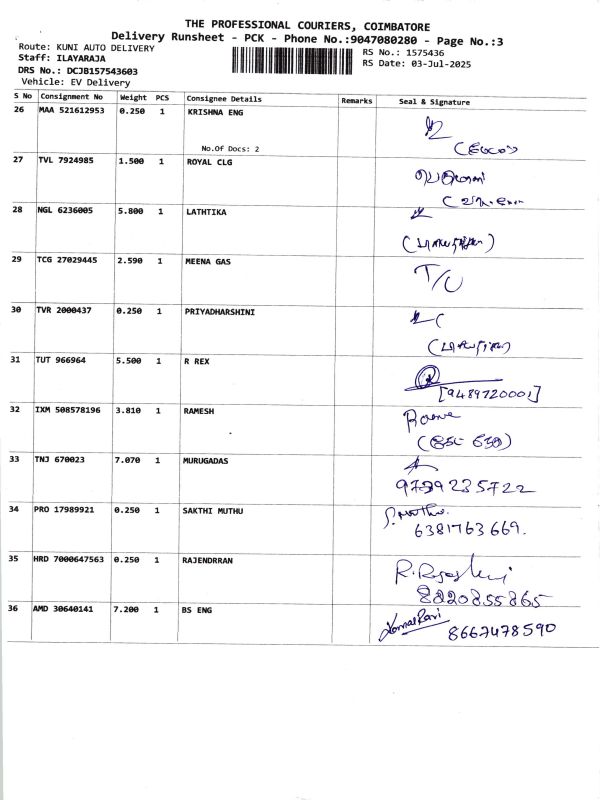 THE PROFESSIONAL COURIERS, COIMBATORE
Delivery Runsheet - PCK - Phone No.:9047080280 - Page No.:3
Route: KUNI AUTO DELIVERY
RS No.: 1575436
Staff: ILAYARAJA
RS Date: 03-Jul-2025
DRS No.: DCJB157543603
Vehicle: EV Delivery
S No Consignment No Weight PCS Consignee Details Remarks Seal & Signature
26 MAA 521612953 0.250 1 KRISHNA ENG
No.Of Docs: 2
27 TVL 7924985 1.500 1 ROYAL CLG
28 NGL 6236005 5.800 1 LATHTIKA
29 TCG 27029445 2.590 1 MEENA GAS T/U
30 TVR 2000437 0.250 1 PRIYADHARSHINI
31 TUT 966964 5.500 1 R REX
[9489720001]
32 IXM 508578196 3.810 1 RAMESH
33 TNJ 670023 7.070 1 MURUGADAS
34 PRO 17989921 0.250 1 SAKTHI MUTHU
6381763669.
35 HRD 7000647563 0.250 1 RAJENDRRAN
8220855865
36 AMD 30640141 7.200 1 BS ENG
8667478590